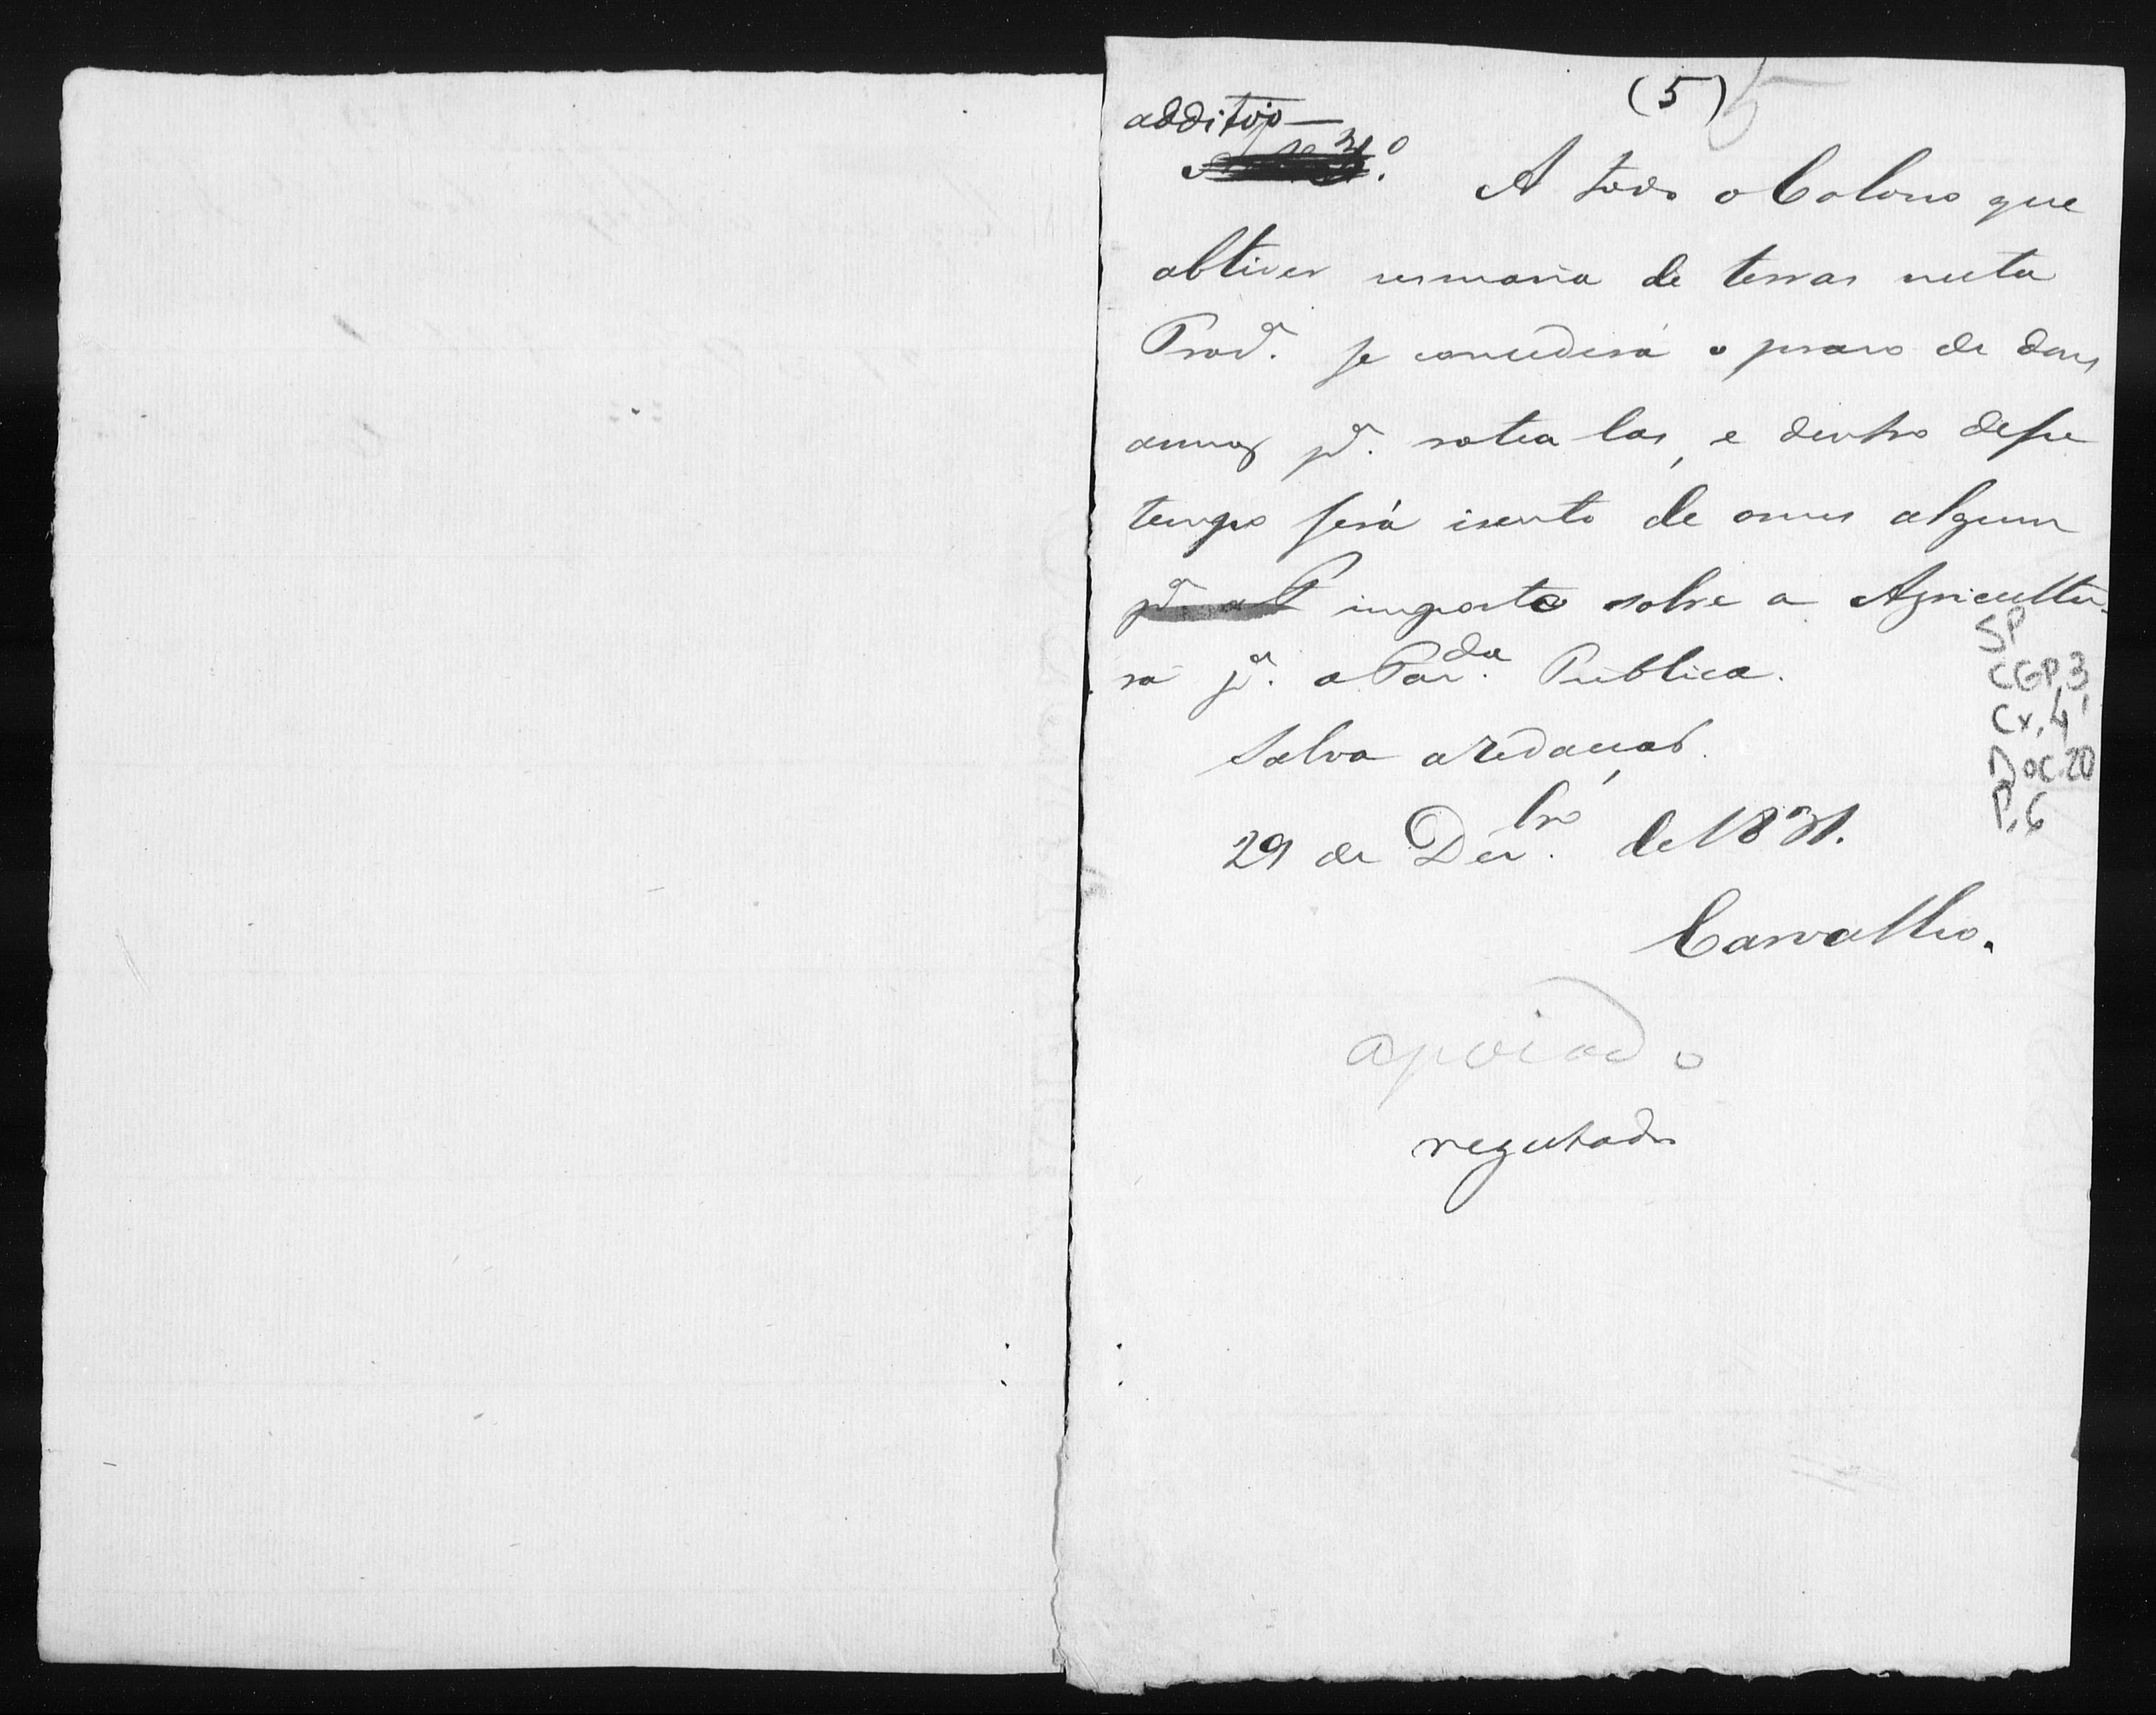 (5) 5
additivo—
A todo o Colono que
obtiver sesmaria de terras nesta
Prov.ª se concederá o praso de dous
annos p.ª rotea las, e dentro desse
tempo será isento de onus algum
p.ª imposto sobre a Agricultu-
ra p.ª a Faz.da Publica.
Salva a redacçaõ.
29 de Dez.bro de 1831.
Carvalho.
apoiado
regeitado
SP
CGP,3
Cx,4
Doc.20
P.6